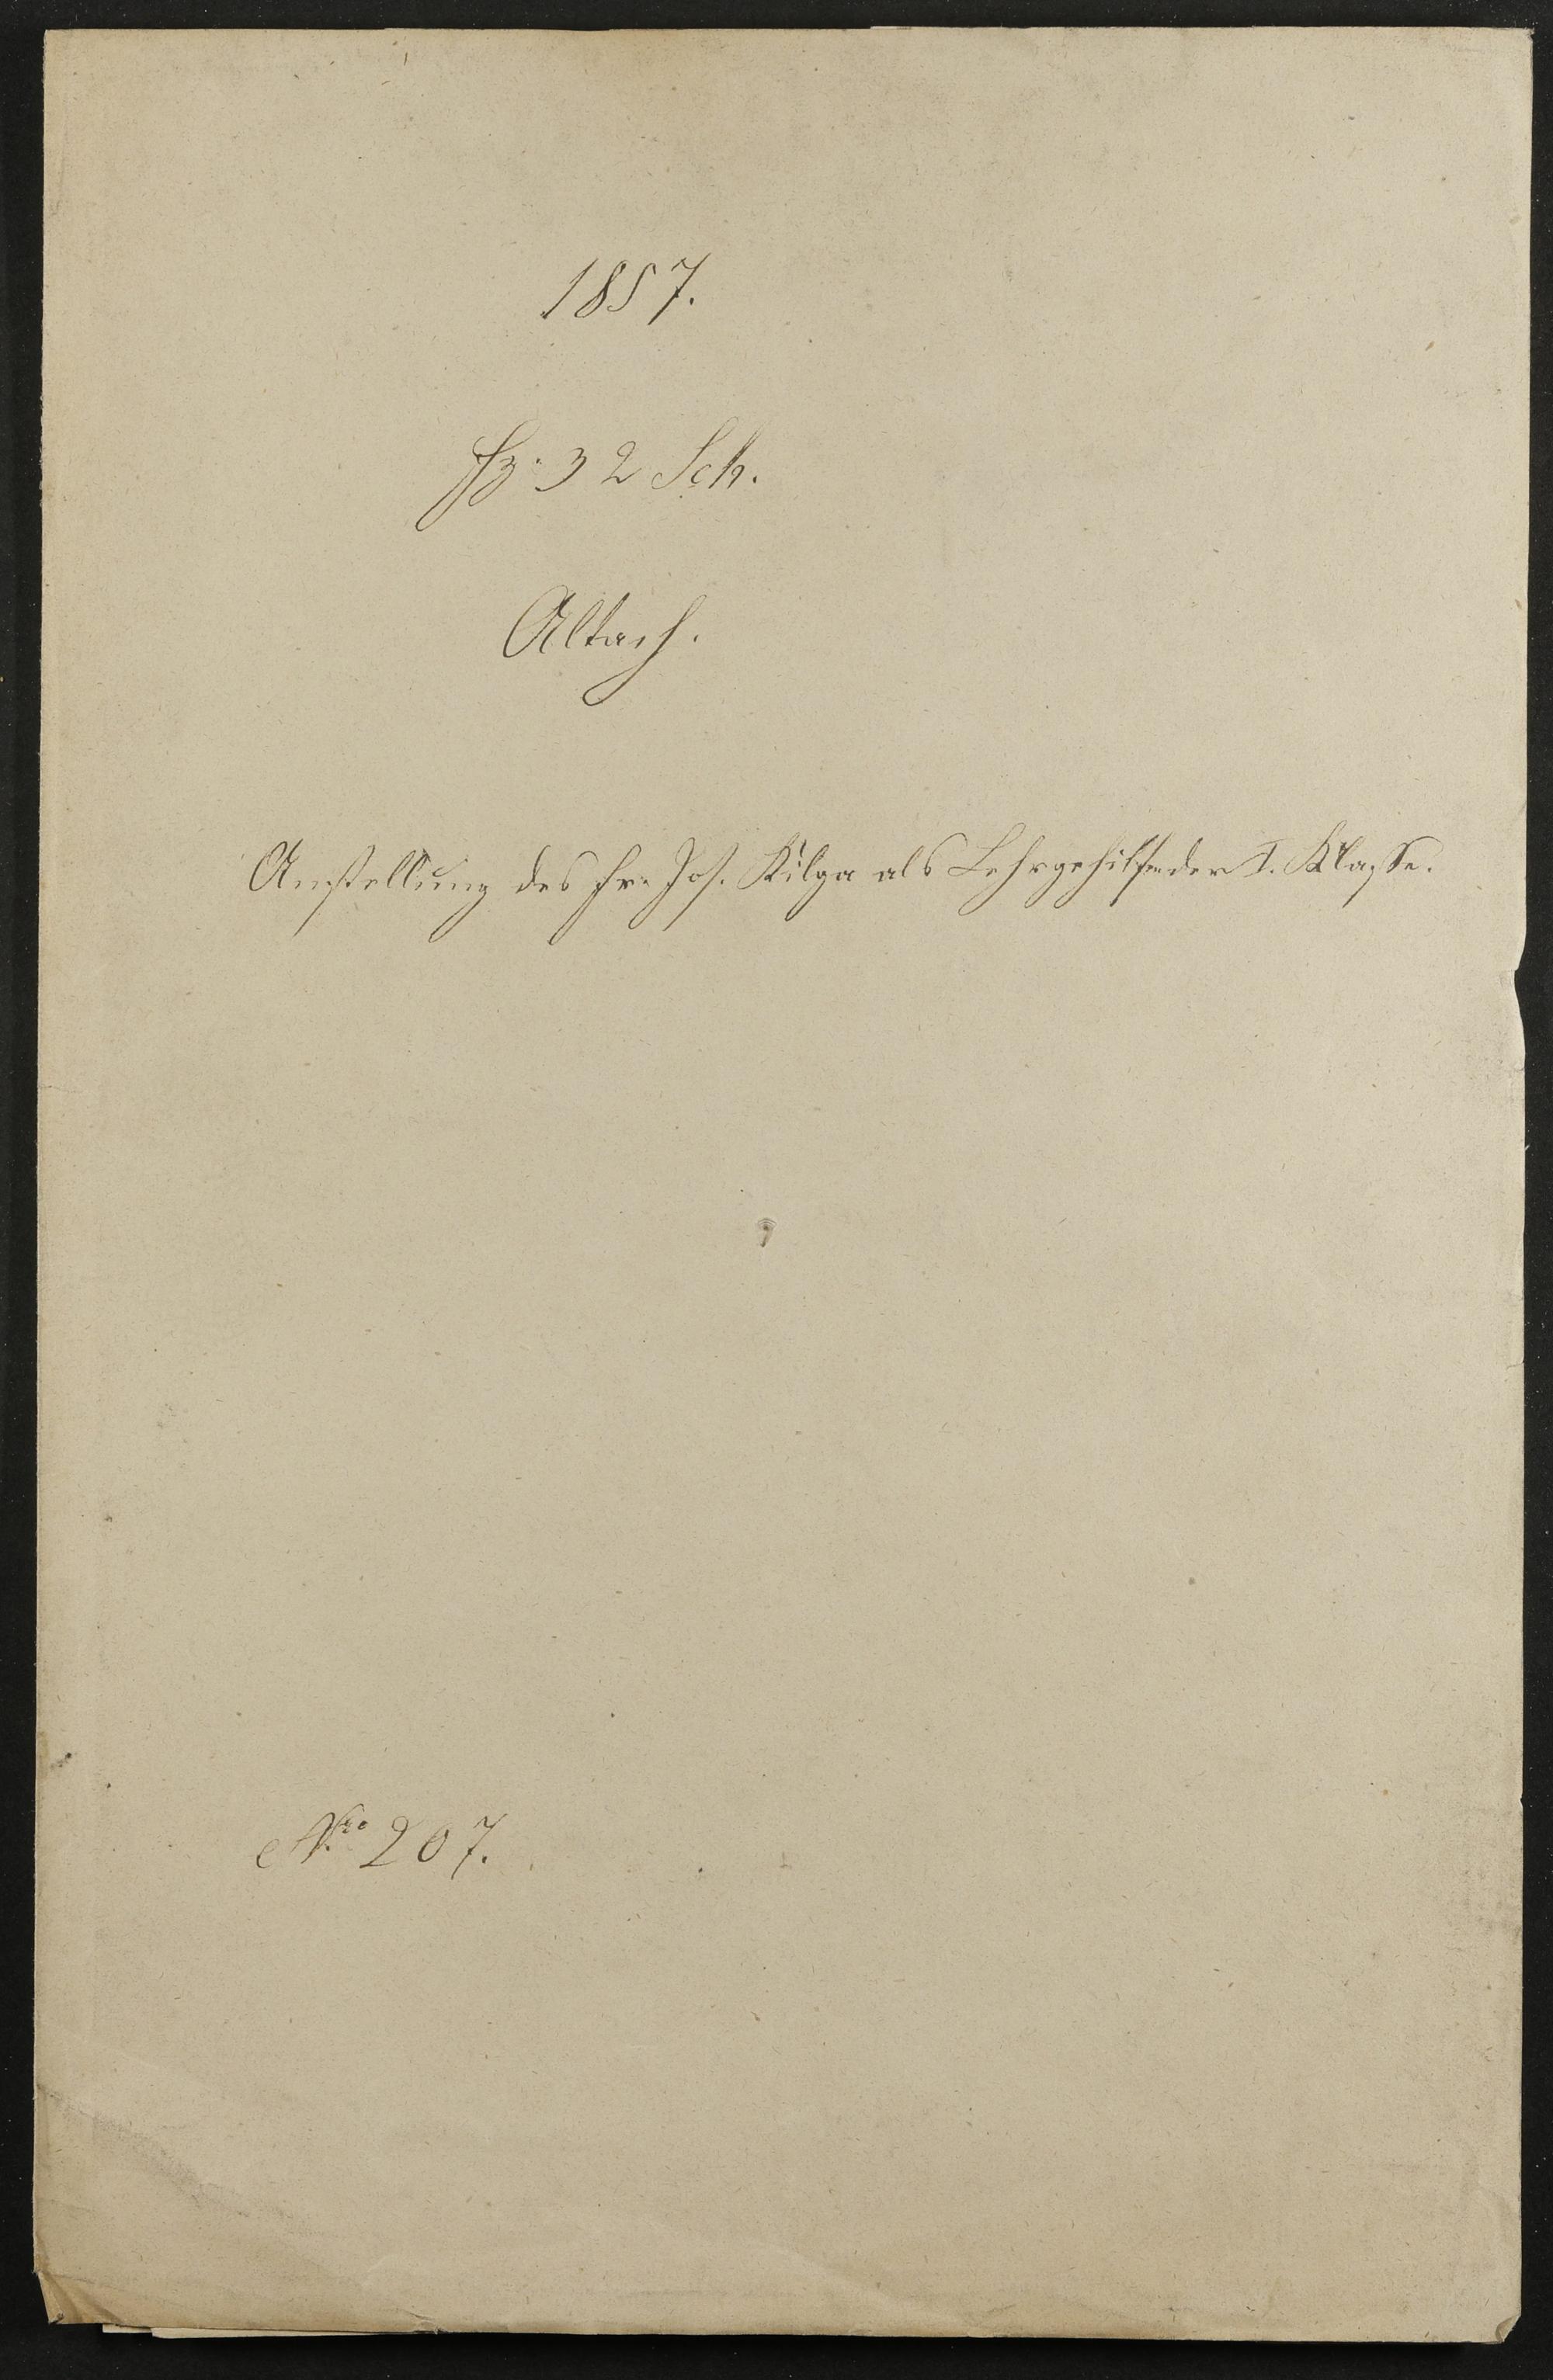 1857.
fz. 32 Sch.
Altach.
Anstellung des Fr. Jos. Kilga als Lehrgehilfe der I. Klasse.
Nro 207.